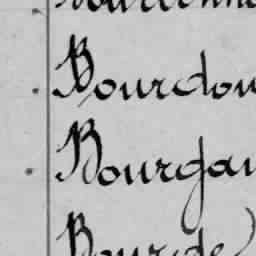 Bourdon
Bourgau
Bourde